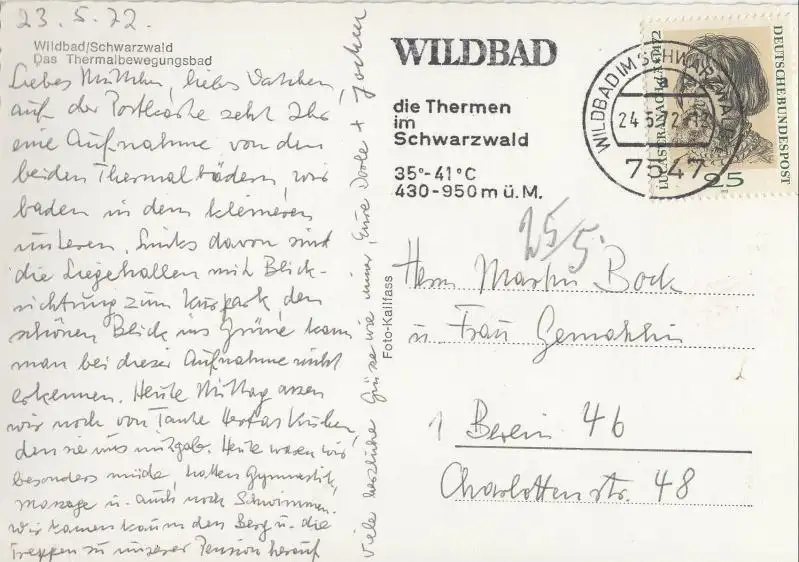 23.5.72.
Wildbad/Schwarzwald
Das Thermalbewegungsbad
Liebes Muttchen, liebes Vatchen,
auf der Postkarte seht Ihr
eine Aufnahme von den
beiden Thermalbädern, wir
baden in dem kleineren
unteren. Links davon sind
die Liegehallen mit Blick-
richtung zum Kurpark, den
schönen Blick ins Grüne kann
man bei dieser Aufnahme nicht
erkennen. Heute Mittag assen
wir noch von Tante Hertas Kuchen,
den sie uns mitgab. Heute waren wir
besonders müde, hatten Gymnastik,
Massage u. auch noch Schwimmen.
Wir kamen kaum den Berg u. die
Treppen zu unserer Pension herauf
Viele herzliche Grüsse wie immer, Eure Dorle + Jochen
Foto-Kallfass
WILDBAD
die Thermen
im
Schwarzwald
35°-41°C
430-950m ü.M.
WILDBAD IM SCHWARZWALD
24.5.72
7547
DEUTSCHE BUNDESPOST
LUCAS CRANACH D.Ä. 1472
25
25/5.
Herrn Martin Bock
u. Frau Gemahlin
1 Berlin 46
Charlottenstr. 48